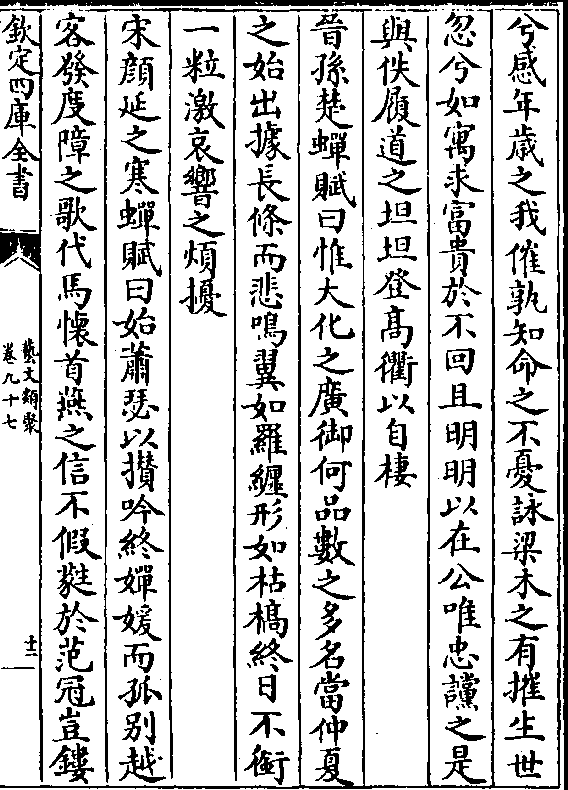 兮感年歳之我催孰知命之不憂詠梁木之有摧生世
忽兮如寓求富貴於不回且明明以在公唯忠讜之是
與佚履道之坦坦登髙衢以自棲
晉孫楚蟬賦曰惟大化之廣御何品數之多名當仲夏
之始出據長條而悲鳴翼如羅纒形如枯槁終日不銜
一粒激哀響之煩擾
宋顔延之寒蟬賦曰始蕭瑟以攅吟終嬋媛而孤别越
客發度障之歌代馬懷首燕之信不假㽔於范冠豈鏤
欽定四庫全書
藝文類聚
卷九十七
十二